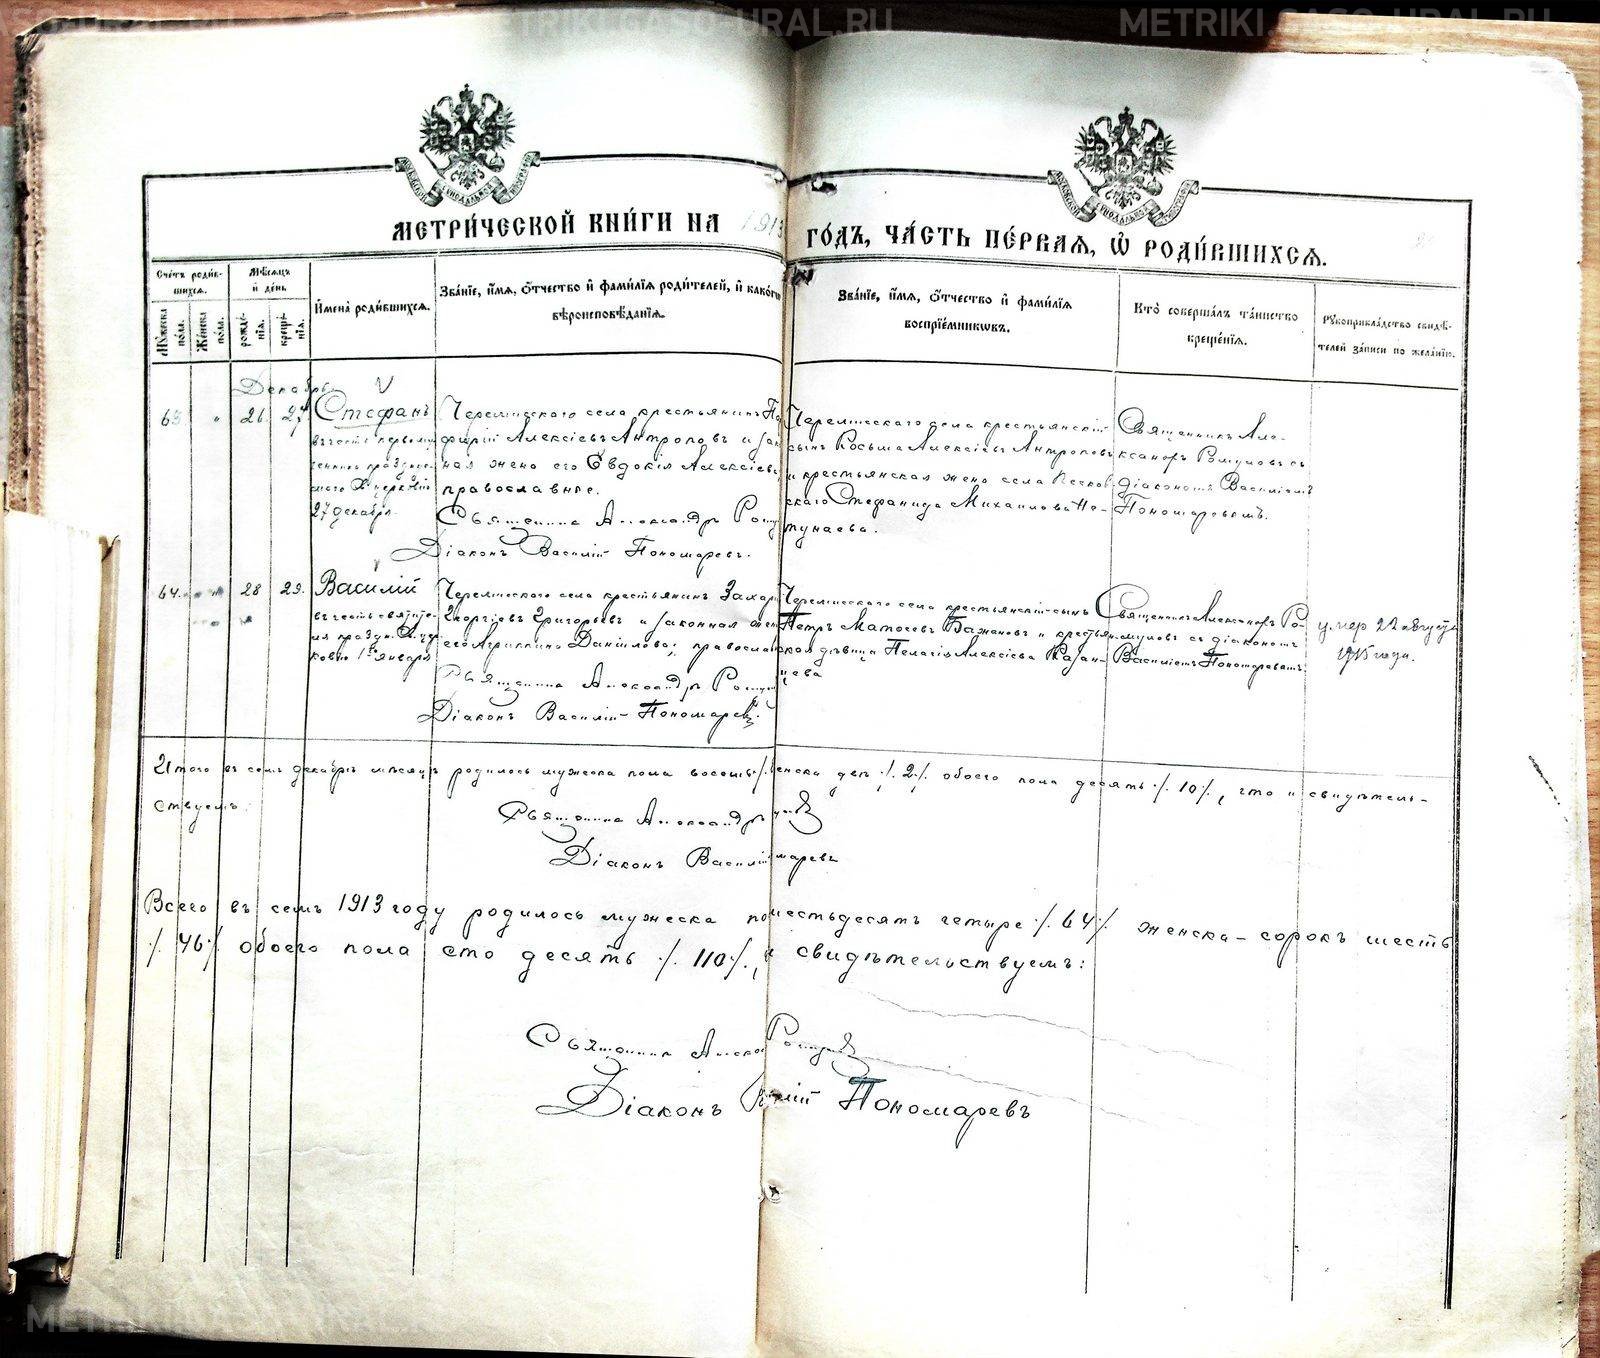 METRIKI.GASO-URAL.RU
METRIKI.GASO-URAL.RU
МЕТРИ́ЧЕСКОЙ КНИ́ГИ НА 1913 ГО́ДЪ, ЧА́СТЬ ПЕ́РВАѦ, Ѽ РОДИ́ВШИХСѦ.
Сче́тъ роди́в-
шихсѧ.
Мѣ́сѧцъ
и де́нь
Мꙋ́жеска по́ла.
Же́нска по́ла.
рожде́нїѧ.
креще́нїѧ.
И҆мена̀ роди́вшихсѧ.
Зва́нїе, и҆́мѧ, ѻ҆́тчество и҆ фами́лїѧ роди́телей, и҆ како́гѡ
вѣроисповѣ́данїѧ.
Зва́нїе, и҆́мѧ, ѻ҆́тчество и҆ фами́лїѧ
воспрїе́мникѡвъ.
Кто̀ соверша́лъ та́инство
креще́нїѧ.
Рꙋкоприкла́дство свидѣ́-
телей за́писи по жела́нїю.
Декабрь
63 " 26 27
Стефанъ
27 декабря.
Черемисскаго села крестьянинъ
Алексѣевъ Антроповъ и
ная жена его Евдокія Алексѣев
православные.
Священникъ Александръ
Діаконъ Василій Пономаревъ.
Черемисскаго села крестьянскій
сынъ Косьма Алексѣевъ Антроповъ
и крестьянская жена села
скаго Стефанида Михаилова
Священникъ Але-
ксандръ Ромуловъ съ
діакономъ Василіемъ
Пономаревымъ.
64. 28 29.
Василій
въ честь святите-
ля празд.
ковію 1го января
Черемисскаго села крестьянинъ Захарі
Георгіевъ Григорьевъ и законная жен
его Агриппина Данилова; православ
Священникъ Александръ
Діаконъ Василій Пономаревъ.
Черемисскаго села крестьянскій сынъ
Петръ Матѳеевъ Бажановъ и крестьян-
ская дѣвица Пелагія Алексѣева Казан-
цева
Священникъ Александръ Ро-
муловъ съ діакономъ
Василіемъ Пономаревымъ.
умер 22 августа
1915 года.
Итого въ семъ декабрѣ мѣсяцѣ родилось мужеска пола восемь женска двѣ ./. 2 ./. обоего пола десять ./. 10 ./., что и свидѣтель-
ствуемъ:
Священникъ Александръ
Діаконъ Василій
Всего въ семъ 1913 году родилось мужеска шестьдесятъ четыре ./. 64 ./. женска – сорокъ шесть
./. 46 ./. обоего пола сто десять ./. 110 ./., свидѣтельствуемъ:
Священникъ
Діаконъ Василій Пономаревъ
METRIKI.GASO-URAL.RU